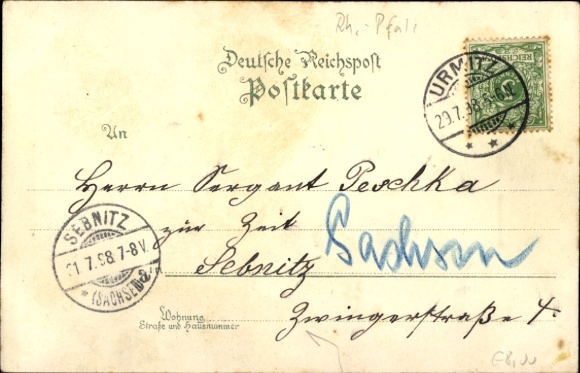 Rh.-Pfalz
Deutsche Reichspost
Postkarte
URMITZ
29.7.98.
REICHSPOST
An
Herrn Sergant Peschka
zur Zeit Sachsen
Sebnitz
Zwingerstraße 4.
SEBNITZ
31.7.98.7-8V.
(SACHSEN)
Wohnung
Straße und Hausnummer
€8,00